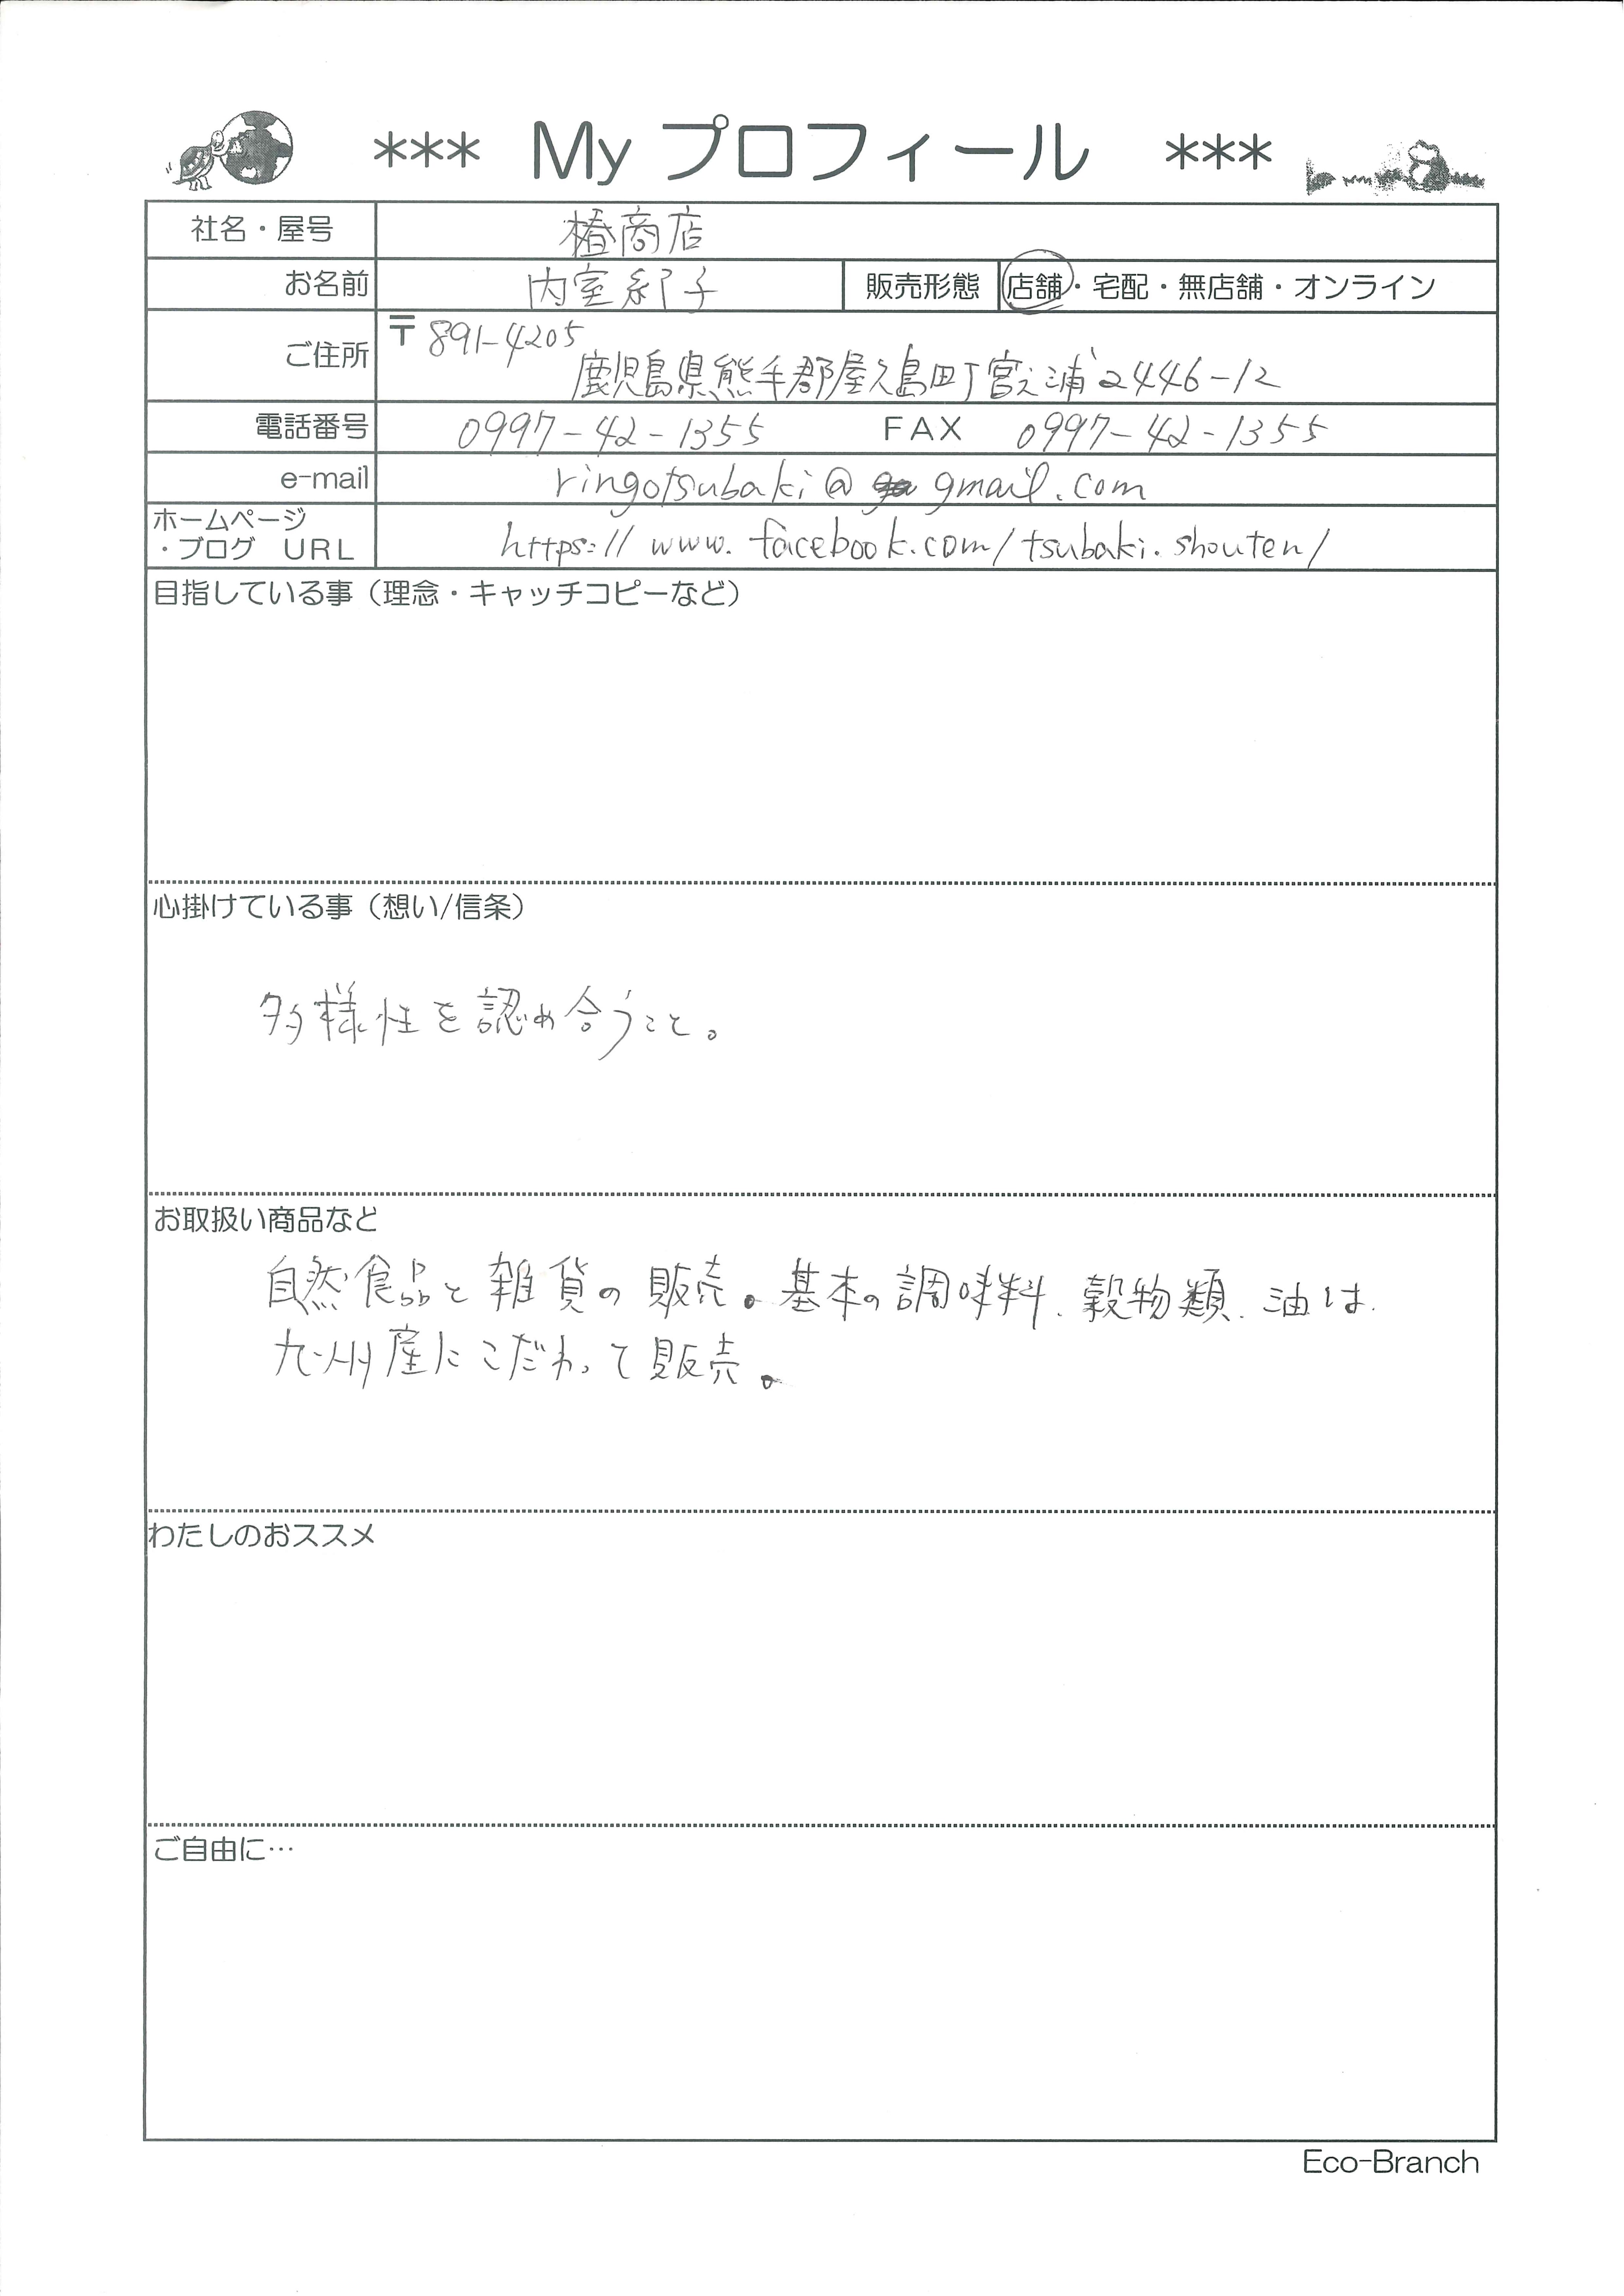 *** My プロフィール ***
社名・屋号 椿商店
お名前 内室紀子 販売形態 店舗・宅配・無店舗・オンライン
ご住所 〒891-4205
鹿児島県熊毛郡屋久島町宮之浦2446-12
電話番号 0997-42-1355 FAX 0997-42-1355
e-mail ringotsubaki@gmail.com
ホームページ
・ブログ URL https://www.facebook.com/tsubaki.shouten/
目指している事（理念・キャッチコピーなど）
心掛けている事（想い/信条）
多様性を認め合うこと。
お取扱い商品など
自然食品と雑貨の販売。基本の調味料、穀物類、油は、
九州産にこだわって販売。
わたしのおススメ
ご自由に…
Eco-Branch